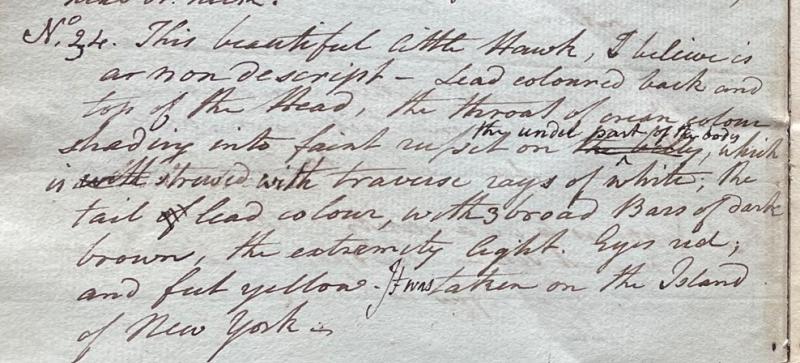 No. 24. This beautiful little Hawk, I believe is
a non descript - Lead coloured back and
top of the Head, the throat of cream colour
shading into faint russet on the belly, which
the under part of the body
is with strewed with traverse rays of white; the
tail of lead colour, with 3 broad Bars of dark
brown, the extremity light. Eyes red;
and feet yellow. It was taken on the Island
of New York.